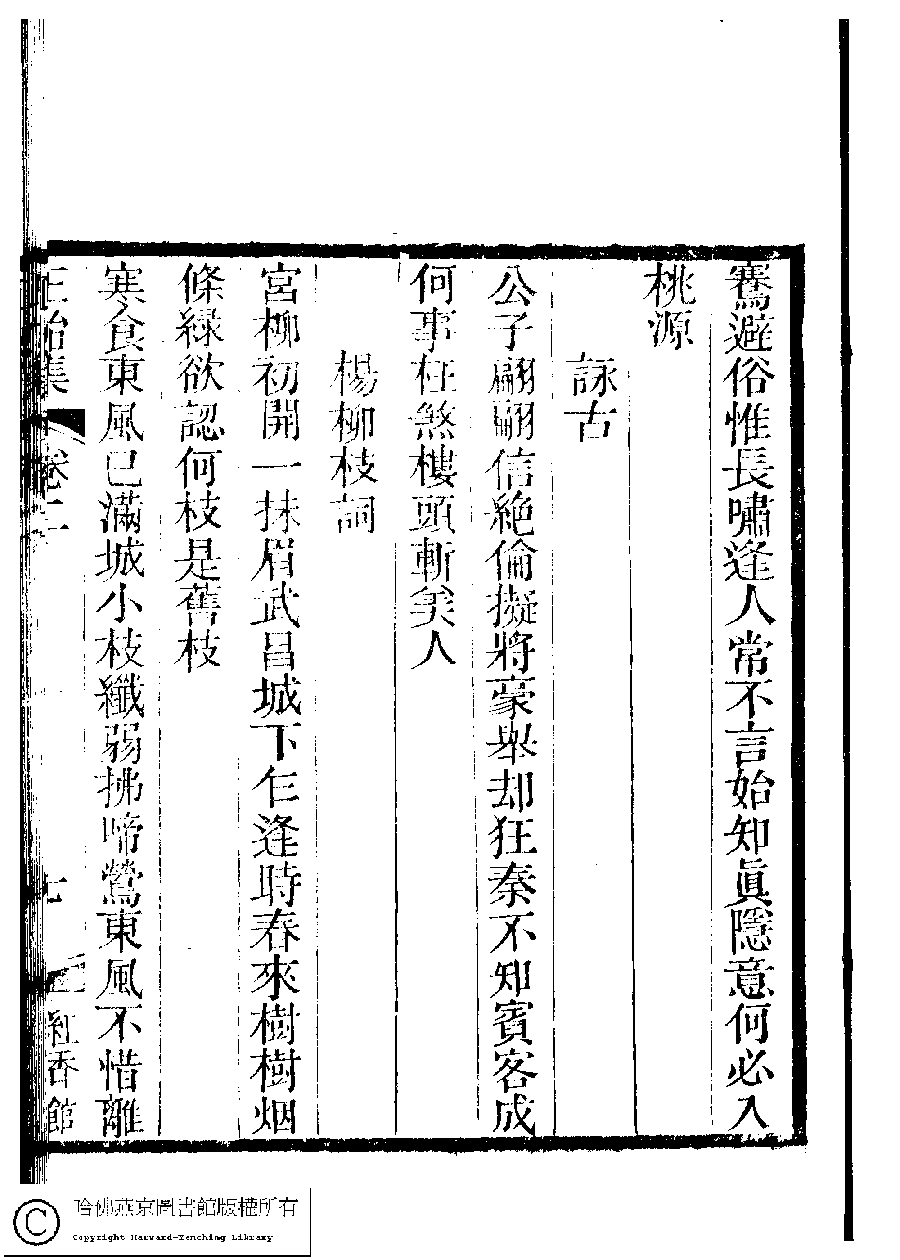 騫避俗惟長嘯逢人常不言始知眞隱意何必入
桃源
詠古
公子翩翩信絶倫擬將豪舉却狂秦不知賓客成
何事枉煞樓頭斬美人
楊柳枝詞
宮柳初開一抹眉武昌城下乍逢時春來樹樹烟
條綠欲認何枝是舊枝
寒食東風已滿城小枝纖弱拂啼鶯東風不惜離
正始集
卷二
七
紅香館
哈佛燕京圖書館版權所有
Copyright Harvard-Yenching Library